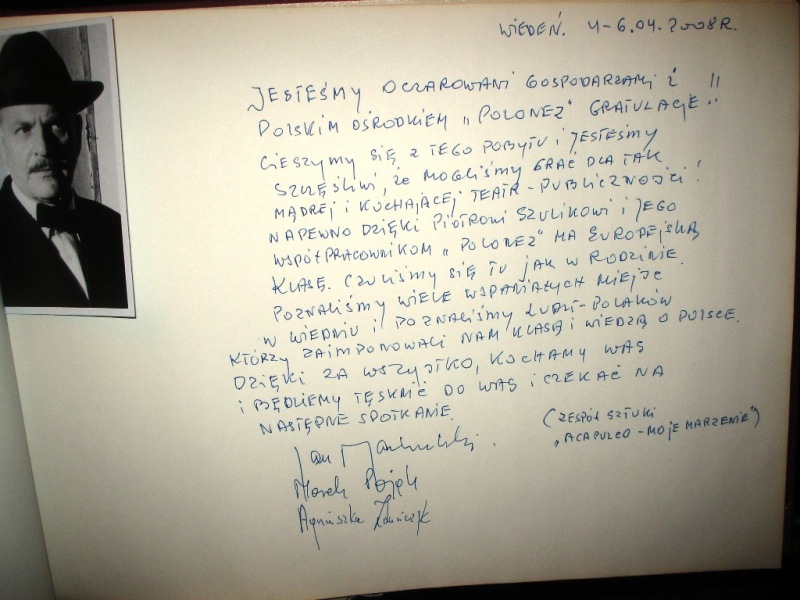 WIEDEŃ. 4-6.04.2008R.
JESTEŚMY OCZAROWANI GOSPODARZAMI I
POLSKIM OŚRODKIEM „POLONEZ" GRATULACJE!!
CIESZYMY SIĘ Z TEGO POBYTU I JESTEŚMY
SZCZĘŚLIWI, ŻE MOGLIŚMY GRAĆ DLA TAK
MĄDREJ I KOCHAJĄCEJ TEATR-PUBLICZNOŚCI!
NAPEWNO DZIĘKI PIOTROWI SZULIKOWI I JEGO
WSPÓŁPRACOWNIKOM „POLONEZ" MA EUROPEJSKĄ
KLASĘ. CZULIŚMY SIĘ TU JAK W RODZINIE.
POZNALIŚMY WIELE WSPANIAŁYCH MIEJSC
W WIEDNIU I POZNALIŚMY LUDZI-POLAKÓW
KTÓRZY ZAIMPONOWALI NAM KLASĄ I WIEDZĄ O POLSCE.
DZIĘKI ZA WSZYSTKO, KOCHAMY WAS
I BĘDZIEMY TĘSKNIĆ DO WAS I CZEKAĆ NA
NASTĘPNE SPOTKANIE.
(ZESPÓŁ SZTUKI
„ACAPULCO-MOJE MARZENIE")
Jan
Marek
Agnieszka